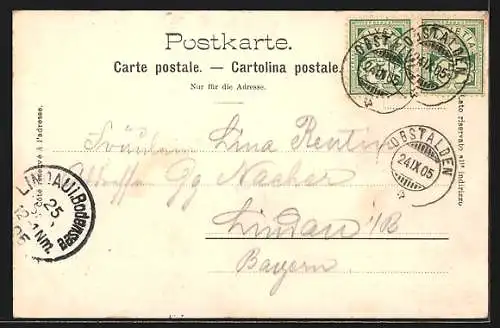 Postkarte.
Carte postale. — Cartolina postale.
Nur für die Adresse.
Côté réservé à l'adresse.
Lato riservato all' indirizzo
HELVETIA
OBSTALDEN
24 IX 05
OBSTALDEN
24 IX 05
LINDAU i. Bod
25
Nm.
05
Fräulein Lina Rentin
Adresse Gg Nacher
Lindau i/B
Bayern